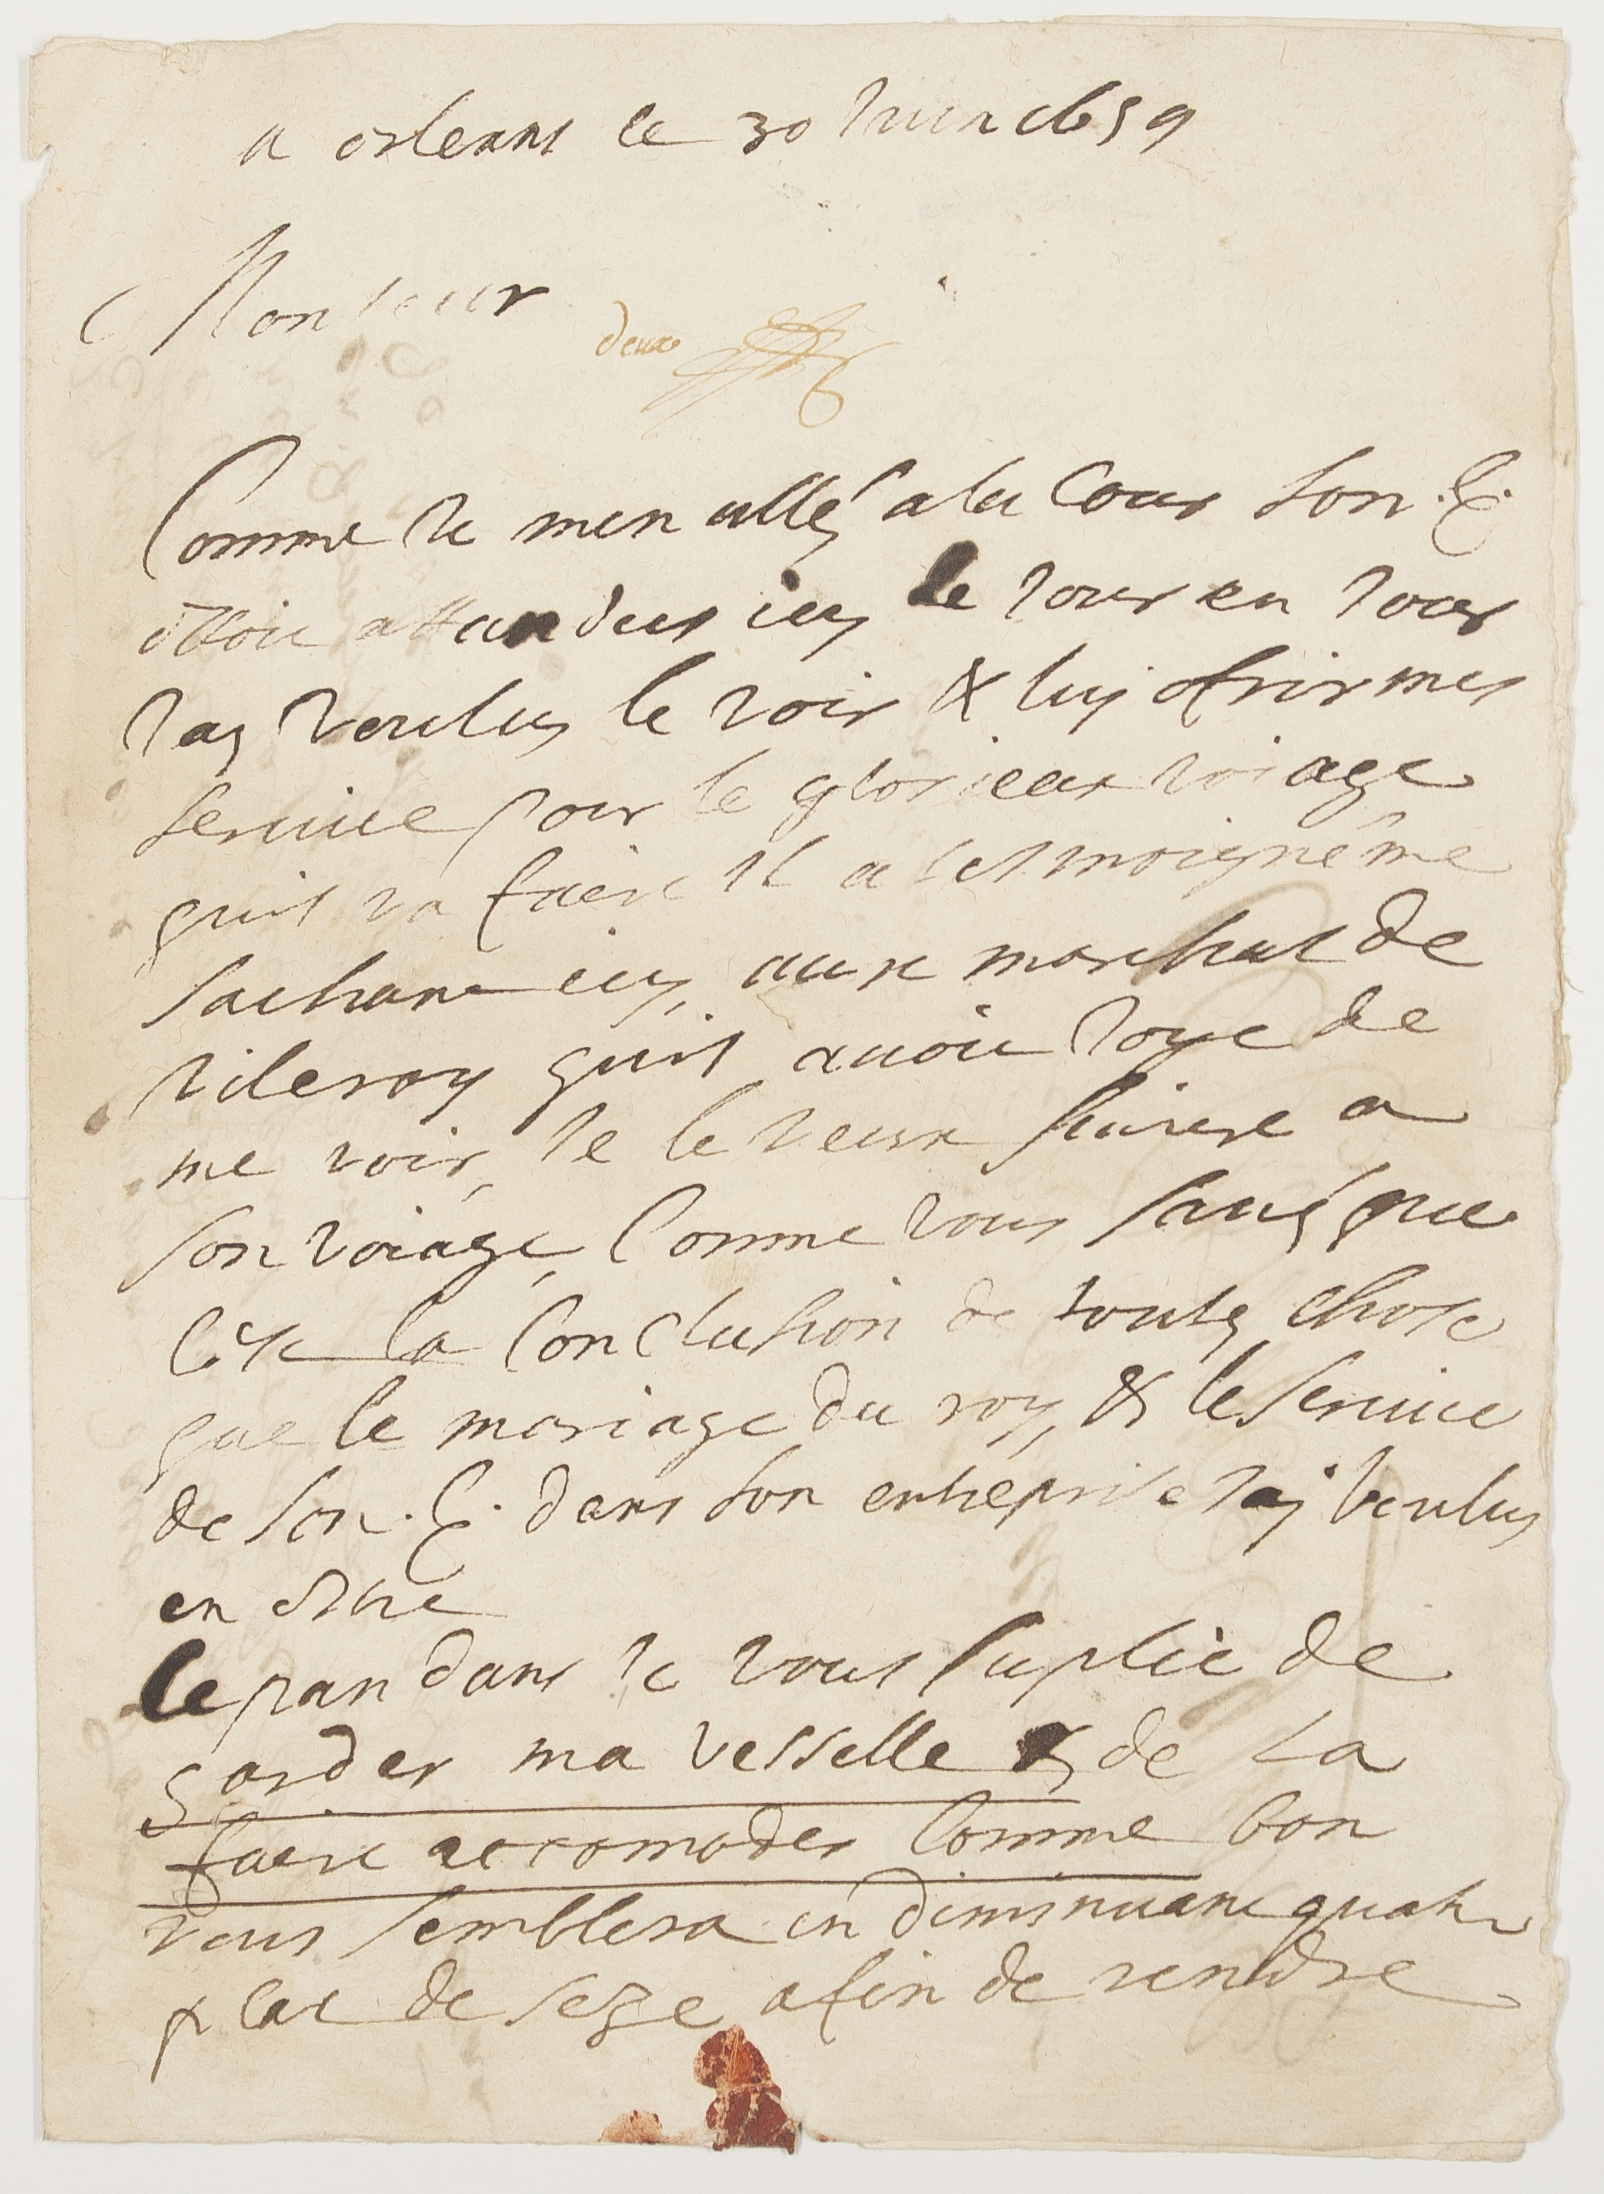 a orleans le 30 Iuin 1659
Monsieur
deux
Comme Ie men allés a la Cour son .E.
estoit attandus icy le Iour en Iour
Iay voulus le voir & luy ofrir mes
seruice pour le glorieux voiage
quil va faire Il a tesmoigné me
sachant icy, aux marchal de
vileroy quil auoit Ioye de
me voir, Ie le veux suiure a
son voiage, Comme vous saués que
Cest la Conclusion de toutes chose
que le mariage du roy, & le seruice
de son .E. dans son entreprise Iay voulus
en estre
Cepandans Ie vous suplie de
garder ma vesselle & de La
faire accomoder Comme bon
vous semblera en diminuant quatre
plat de seze afin de rendre